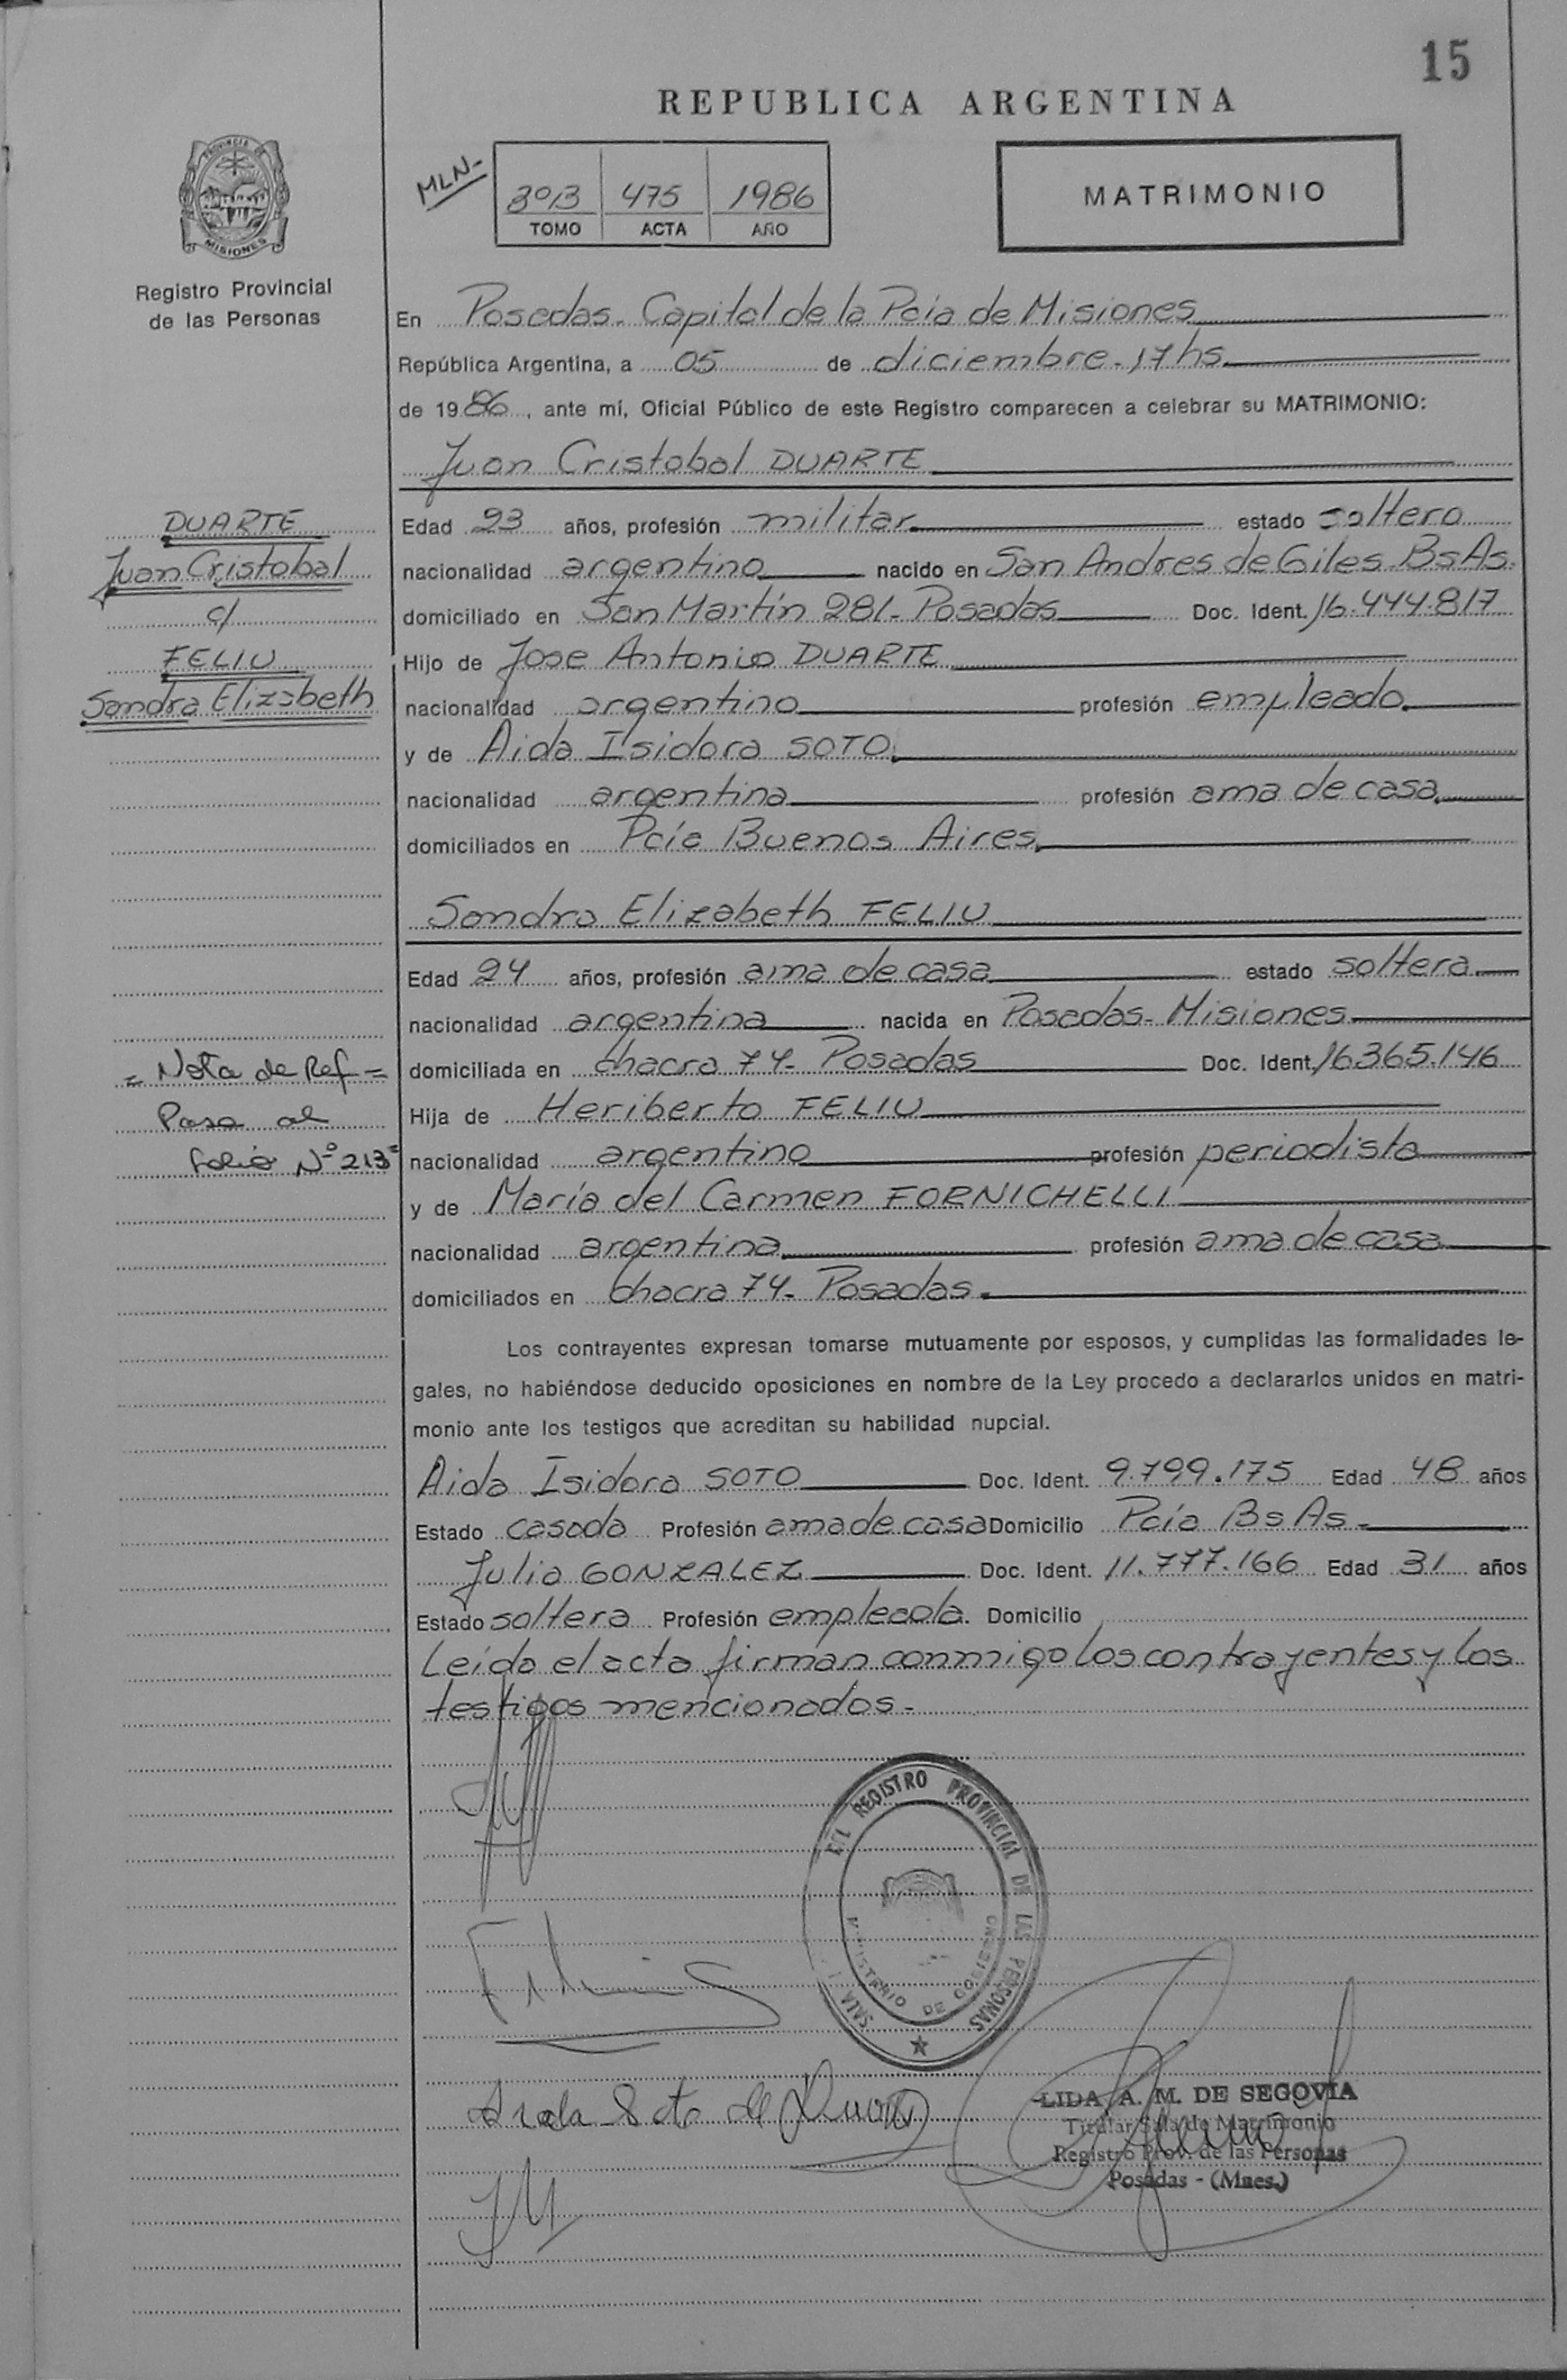 15
REPUBLICA ARGENTINA
PROVINCIA DE
MISIONES
Registro Provincial
de las Personas
MLN-
3º13 475 1986
TOMO ACTA AÑO
MATRIMONIO
En Posadas. Capital de la Pcia de Misiones
República Argentina, a 05 de diciembre - 17 hs
de 1986, ante mí, Oficial Público de este Registro comparecen a celebrar su MATRIMONIO:
Juan Cristobal DUARTE
DUARTE
Juan Cristobal
c/
FELIU
Sandra Elizabeth
Edad 23 años, profesión militar estado soltero
nacionalidad argentino nacido en San Andres de Giles Bs As.
domiciliado en San Martín 281 - Posadas Doc. Ident. 16.444.817
Hijo de Jose Antonio DUARTE
nacionalidad argentino profesión empleado
y de Aida Isidora SOTO
nacionalidad argentina profesión ama de casa
domiciliados en Pcia Buenos Aires
Sandra Elizabeth FELIU
Edad 24 años, profesión ama de casa estado soltera
nacionalidad argentina nacida en Posadas - Misiones
domiciliada en chacra 74 - Posadas Doc. Ident. 16.365.146
Hija de Heriberto FELIU
nacionalidad argentino profesión periodista
y de María del Carmen FORNICHELLI
nacionalidad argentina profesión ama de casa
domiciliados en chacra 74 - Posadas.
= Nota de Ref =
Pasa al
folio Nº 213=
Los contrayentes expresan tomarse mutuamente por esposos, y cumplidas las formalidades le-
gales, no habiéndose deducido oposiciones en nombre de la Ley procedo a declararlos unidos en matri-
monio ante los testigos que acreditan su habilidad nupcial.
Aida Isidora SOTO Doc. Ident. 9.799.175 Edad 48 años
Estado casada Profesión ama de casa Domicilio Pcia Bs As -
Julia GONZALEZ Doc. Ident. 11.777.166 Edad 31 años
Estado soltera Profesión empleada. Domicilio
Leída el acta firman conmigo los contrayentes y los
testigos mencionados -
REGISTRO PROVINCIAL DE LAS PERSONAS
MINISTERIO DE GOBIERNO
Aida Soto de Duarte
LIDA A. M. DE SEGOVIA
Titular Sala de Matrimonio
Registro Prov. de las Personas
Posadas - (Mnes.)